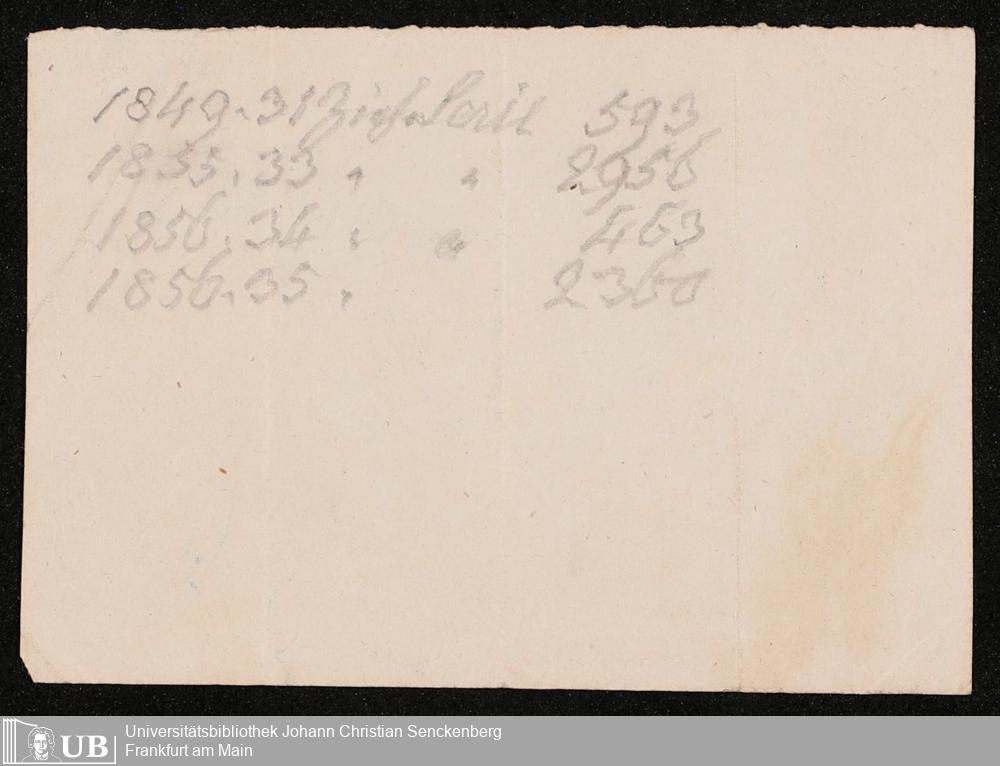 1849. 31 Zieh. Serie 593
1855. 33 " " 2956
1856. 34 " " 463
1856. 35 " 2360
UB Universitätsbibliothek Johann Christian Senckenberg
Frankfurt am Main